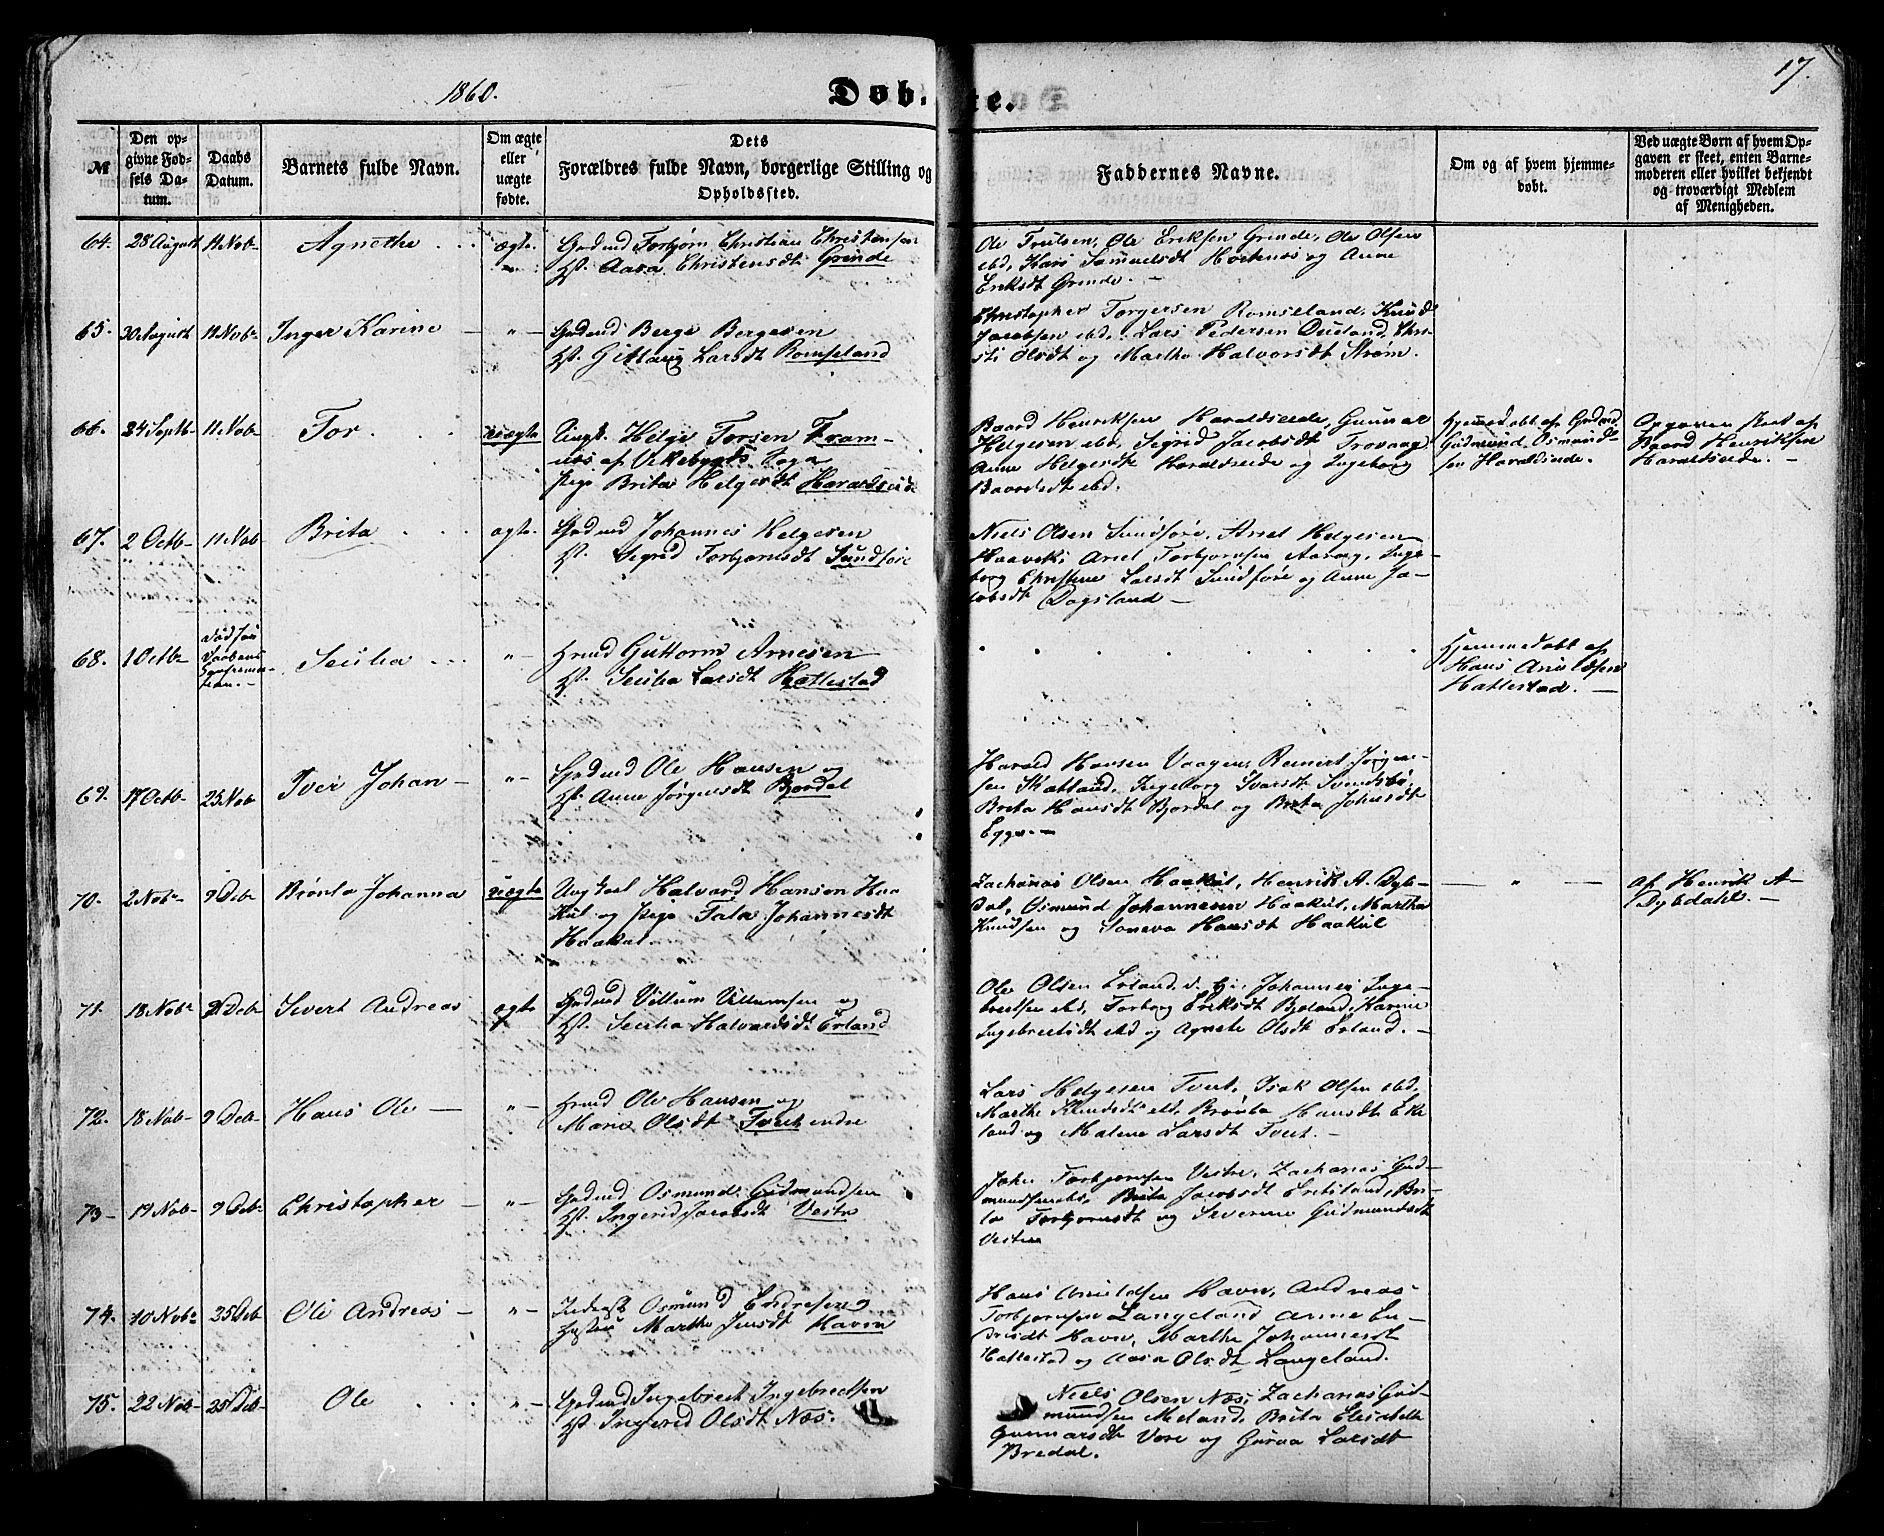 1860.
Døb-
te.
17.
№
Den op-
givne Fød-
sels Da-
tum.
Daabs
Datum.
Barnets fulde Navn.
Om ægte
eller
uægte
fødte.
Dets
Forældres fulde Navn, borgerlige Stilling og
Opholdssted.
Faddernes Navne.
Om og af hvem hjemme-
døbt.
Ved uægte Børn af hvem Op-
gaven er skeet, enten Barne-
moderen eller hvilket bekjendt
og troværdigt Medlem
af Menigheden.
64. 28 August 11 Nobr Agnethe ægte
Torbjørn Christian Christensen
Aasa Christensdt Grinde
Ole Trulsen, Ole Eriksen Grinde, Ole Olsen
ebd, Kari Samuelsdt og Anne
Eriksdt Grinde. —
65. 30 August 11 Nobr Inger Karine — " —
Berge Bergesen
Larsdt Romseland
Christopher Torgersen Romseland, Knud
Jacobsen ebd, Lars Pedersen Dueland, Chri-
sti Olsdt og Martha Halvorsdt Strøm.
66. 24 Septb 11 Nobr Tor uægte
Ungk. Helge Torsen Fram-
næs af Vikebygds Sogn
Pige Brita Helgesdt Haraldseide
Baard Henriksen Haraldseide, Gunnar
Helgesen ebd, Sigrid Jacobsdt
Anne Helgesdt Haraldseide og Ingeborg
Baardsdt ebd.
Hjemmedøbt af
Gudmund Osmund-
sen Haraldseide.
Opgaven skeet af
Baard Henriksen
Haraldseide. —
67. 2 Octb 11 Nobr Brita ægte
Johannes Helgesen
Sigrid Torbjørnsdt Sundføre
Niels Olsen Sundføre, Arnt Helgesen
Torbjørnsen Inge-
borg Christine Larsdt Sundføre og Anne Ja-
cobsdt Dagsland —
68. 1 Octbr
Død før
Daabens
Seselia — " —
Guttorm Arnesen
Seselia Larsdt Hattestad
Hjemmedøbt af
Hans
Hattestad. —
69. 17 Octb 25 Nob Iver Johan — " —
Ole Hansen og
Anna Jørgensdt Bjordal
Harald Hansen Vaagen, Reinert Jørgen-
sen Ingeborg Ivarsdt Svendsbø,
Brita Hansdt Bjordal og Brita Johnsdt
Egge. —
70. 2 Nobr 9 Debr Brønla Johanna uægte
Ungkarl Halvard Hansen Haa-
kul og Pige Tala Johannesdt
Haakul.
Zacharias Olsen Haakul, Henrik A. Dybe-
dal, Osmund Johannesen Haakul, Martha
Knudsen og Hansdt Haakul
— " —
af Henrik A.
Dybdahl. —
71. 18 Nobr Debr Sivert Andreas ægte
Villum Villumsen og
Seselia Halvardsdt Erland
Ole Olsen Erland, Johannes Inge-
bretsen ebd, Torborg Eriksdt Bjoland, Karine
Ingebretsdt ebd og Agnete Olsdt Erland. —
72. 18 Nob 9 Deb Hans Ole — " —
Ole Hansen og
Maria Olsdt Tveit indre
Lars Helgesen Tveit, Isak Olsen ebd,
Marthe Knudsdt ebd, Brønla Hansdt Eke-
land og Malene Larsdt Tveit. —
73 — 19 Nob 9 Debr Christopher — " —
Osmund Gudmundsen
Ingerid Jacobsdt Vestre
John Torbjørnsen Vestre, Zacharias Gud-
mundsen ebd, Brita Jacobsdt Bri-
ta Torbjørnsdt og Severine Gudmundsdt
Vestre
74. 10 Nobr 25 Deb Ole Andreas — " —
Osmund Endresen og
Hustru Marthe Jensdt Havn
Hans Havn, Andreas
Torbjørnsen Langeland Anne En-
dresdt Havn, Marthe Johannesdt
Hattestad og Aasa Olsdt Langeland.
75. 22 Nob 25 Deb Ole — " —
Ingebret Ingebretsen
Ingerid Olsdt Næs.
Niels Olsen Næs, Zacharias Gud-
mundsen Meland, Brita Elisabeth
Gunnarsdt og Guroa Larsdt
Bredal.